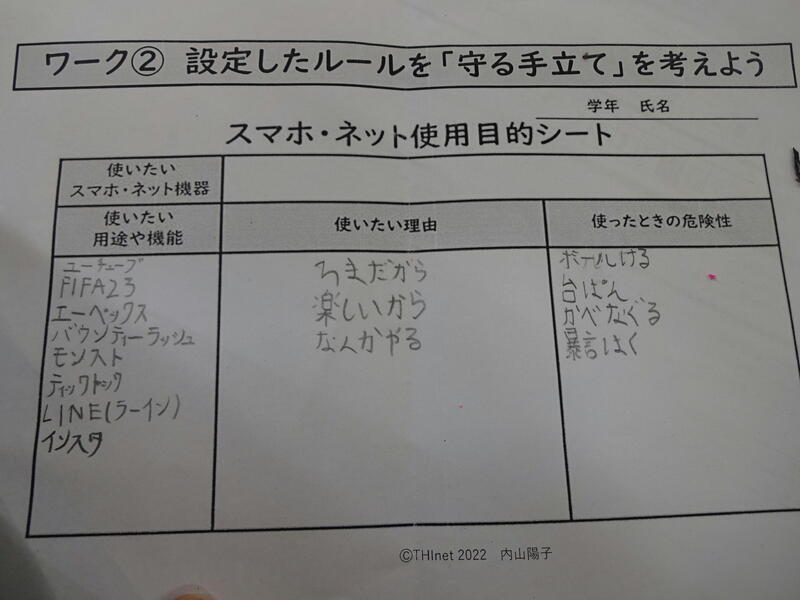 ワーク② 設定したルールを「守る手立て」を考えよう
学年 氏名
スマホ・ネット使用目的シート
使いたい
スマホ・ネット機器
使いたい
用途や機能
使いたい理由
使ったときの危険性
ユーチューブ
FIFA23
エーペックス
バウンティーラッシュ
モンスト
ティックトック
LINE(ラーイン)
インスタ
ひまだから
楽しいから
なんかやる
ボールける
台ぱん
かべなぐる
暴言はく
©THInet 2022 内山陽子